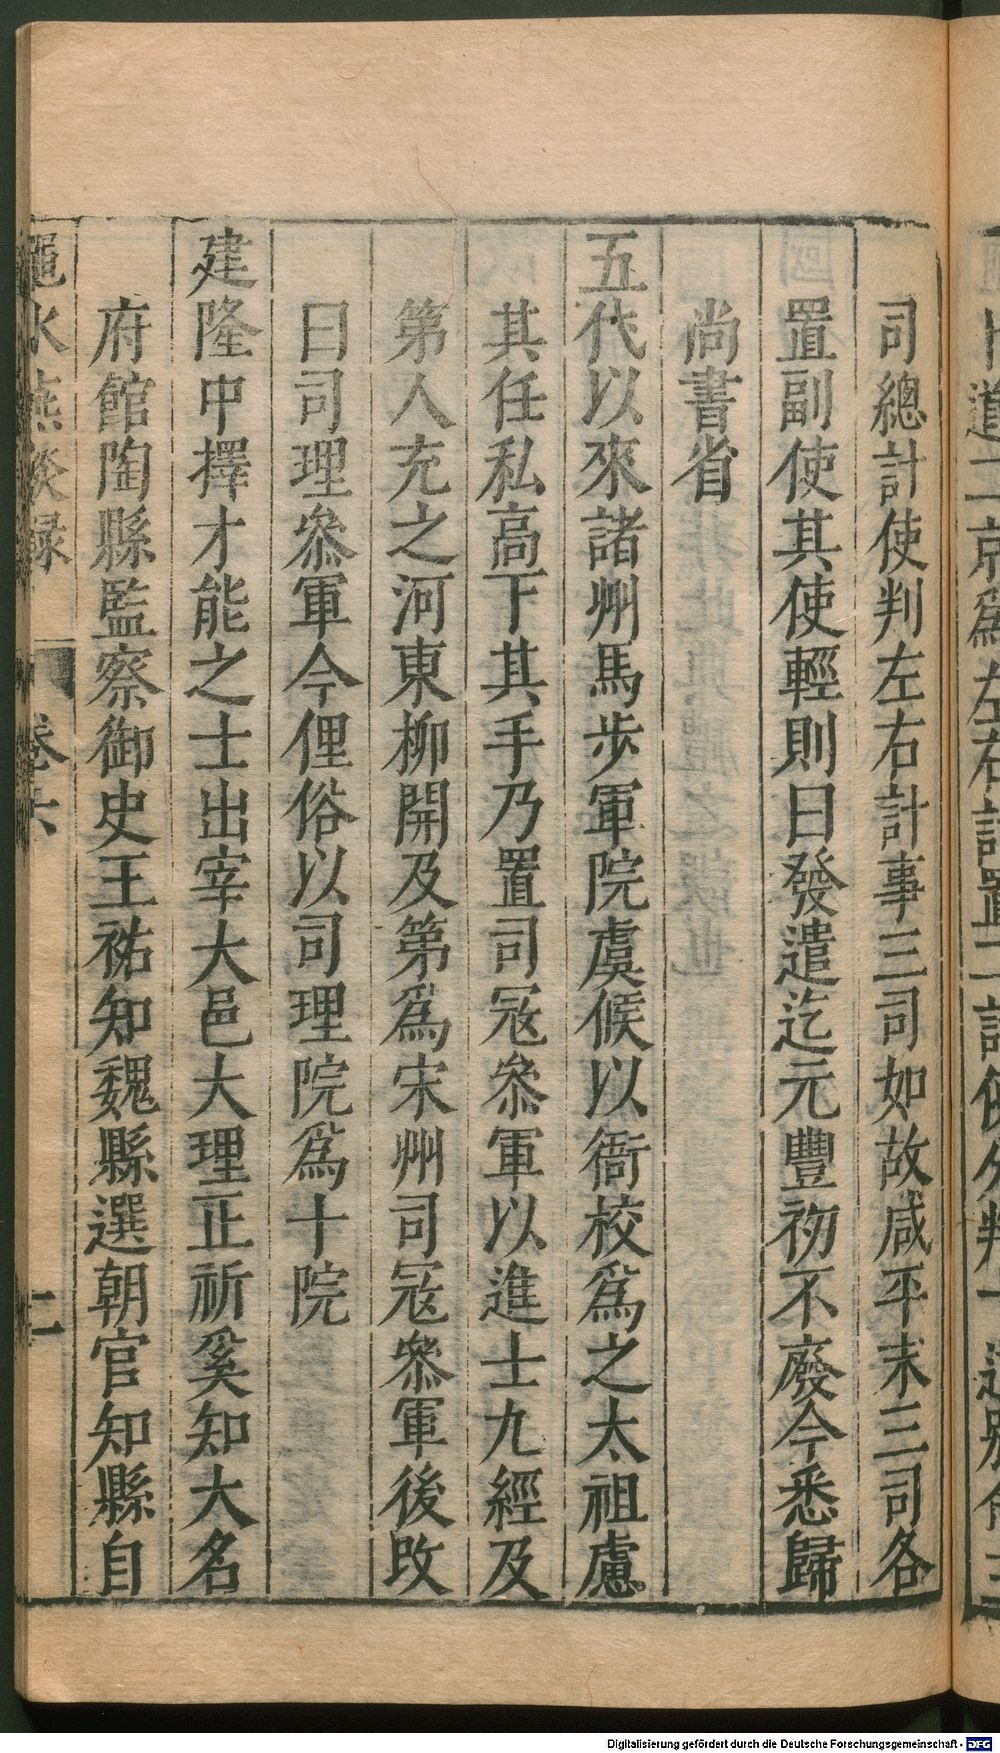 司總計使判左右計事三司如故咸平末三司各
置副使其使輕則曰發遣迄元豐初不廢今悉歸
尚書省
五代以來諸州馬步軍院虞候以衙校爲之太祖慮
其任私高下其手乃置司冦叅軍以進士九經及
第人充之河東柳開及第爲宋州司冦叅軍後改
曰司理叅軍今俚俗以司理院爲十院
建隆中擇才能之士出宰大邑大理正祈奚知大名
府館陶縣監察御史王祐知魏縣選朝官知縣自
澠水燕談録 卷六 二
Digitalisierung gefördert durch die Deutsche Forschungsgemeinschaft - DFG